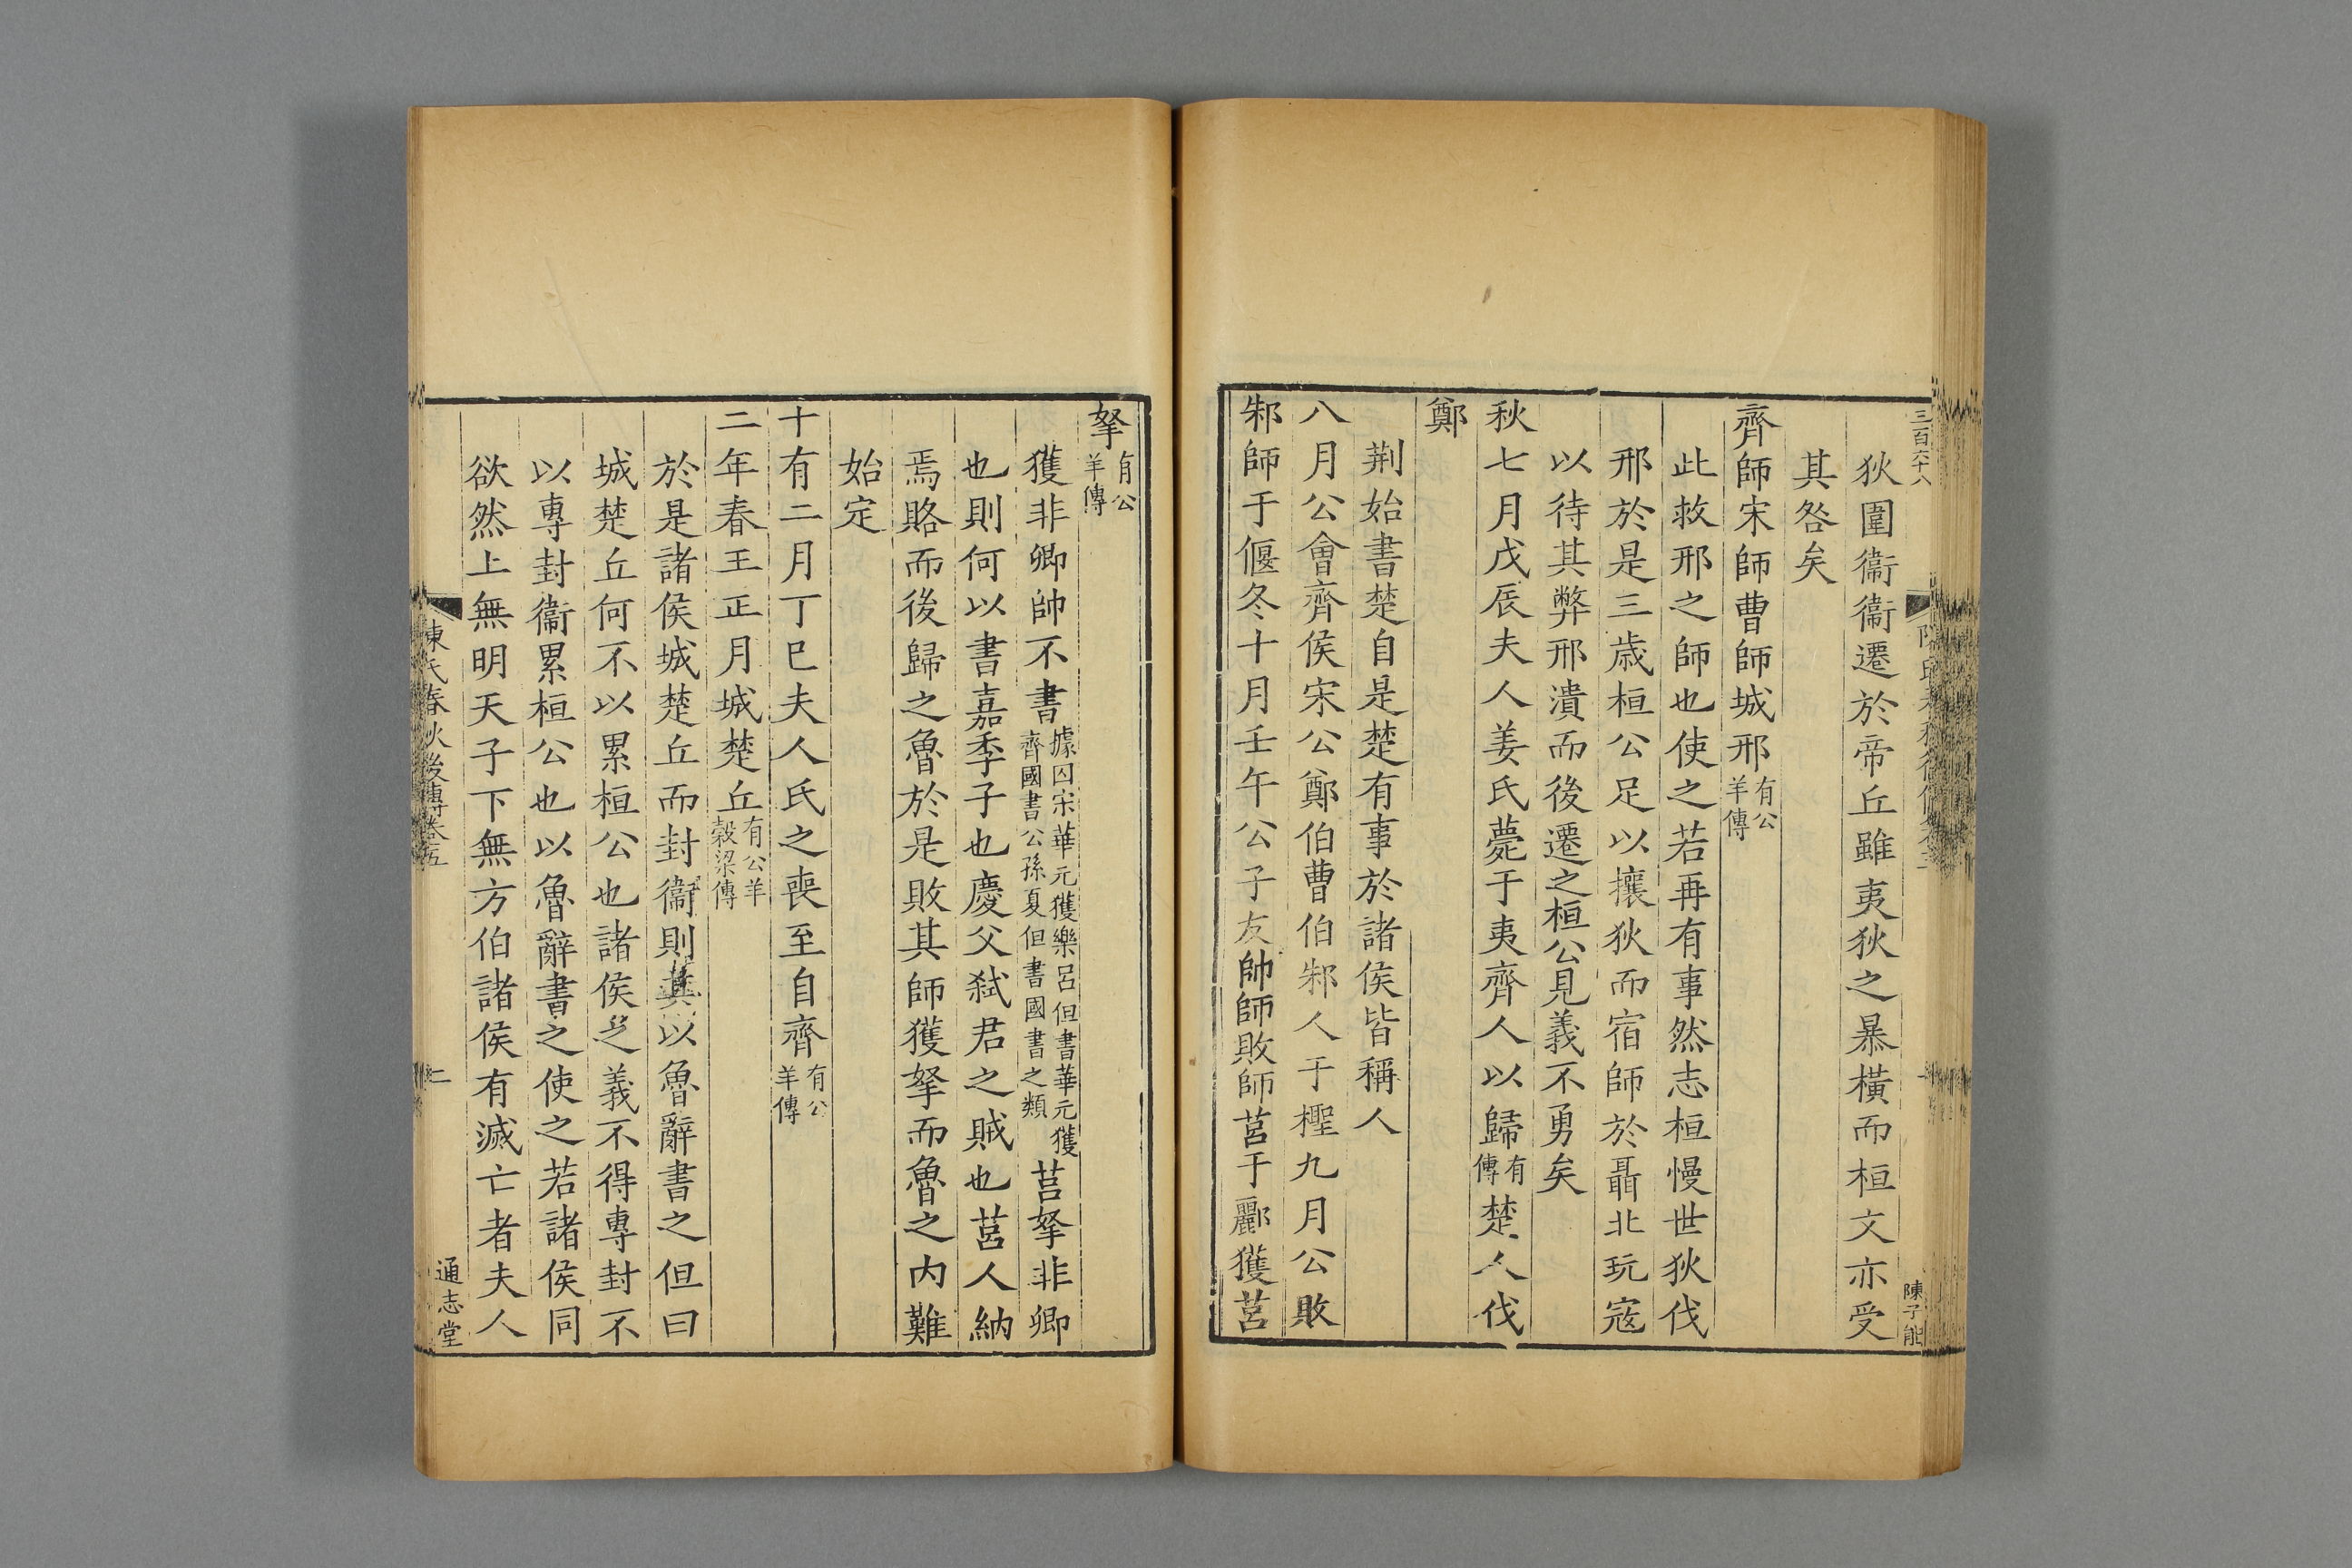 三百六十八
陳子能
狄圍衞衞遷於帝丘雖夷狄之暴橫而桓文亦受
其咎矣
齊師宋師曹師城邢有公羊傳
此救邢之師也使之若再有事然志桓慢世狄伐
邢於是三歲桓公足以攘狄而宿師於聶北玩寇
以待其弊邢潰而後遷之桓公見義不勇矣
秋七月戊辰夫人姜氏薨于夷齊人以歸有傳楚人伐
鄭
荆始書楚自是楚有事於諸侯皆稱人
八月公會齊侯宋公鄭伯曹伯邾人于檉九月公敗
邾師于偃冬十月壬午公子友帥師敗師莒于酈獲莒
挐有公羊傳
獲非卿帥不書據囚宋華元獲樂呂但書華元獲齊國書公孫夏但書國書之類莒挐非卿
也則何以書嘉季子也慶父弒君之賊也莒人納
焉賂而後歸之魯於是敗其師獲挐而魯之内難
始定
十有二月丁巳夫人氏之喪至自齊有公羊傳
二年春王正月城楚丘有公羊穀梁傳
於是諸侯城楚丘而封衞則其以魯辭書之但曰
城楚丘何不以累桓公也諸侯之義不得專封不
以專封衞累桓公也以魯辭書之使之若諸侯同
欲然上無明天子下無方伯諸侯有滅亡者夫人
陳氏春秋後傳卷五
二
通志堂